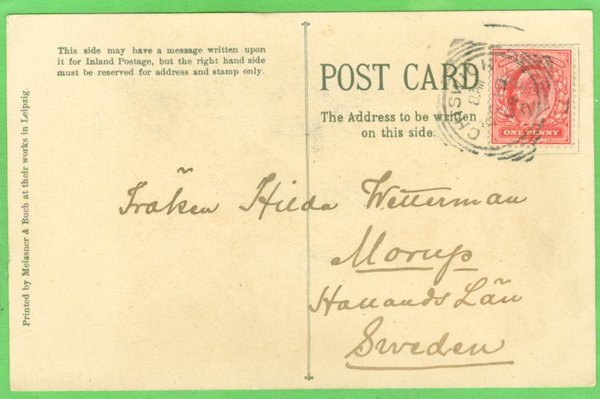 This side may have a message written upon
it for Inland Postage, but the right hand side
must be reserved for address and stamp only.
POST CARD
The Address to be written
on this side.
ONE PENNY
Printed by Meissner & Buch at their works in Leipzig
Fröken Hilda Wetterman
Morup
Hallands Län
Sweden